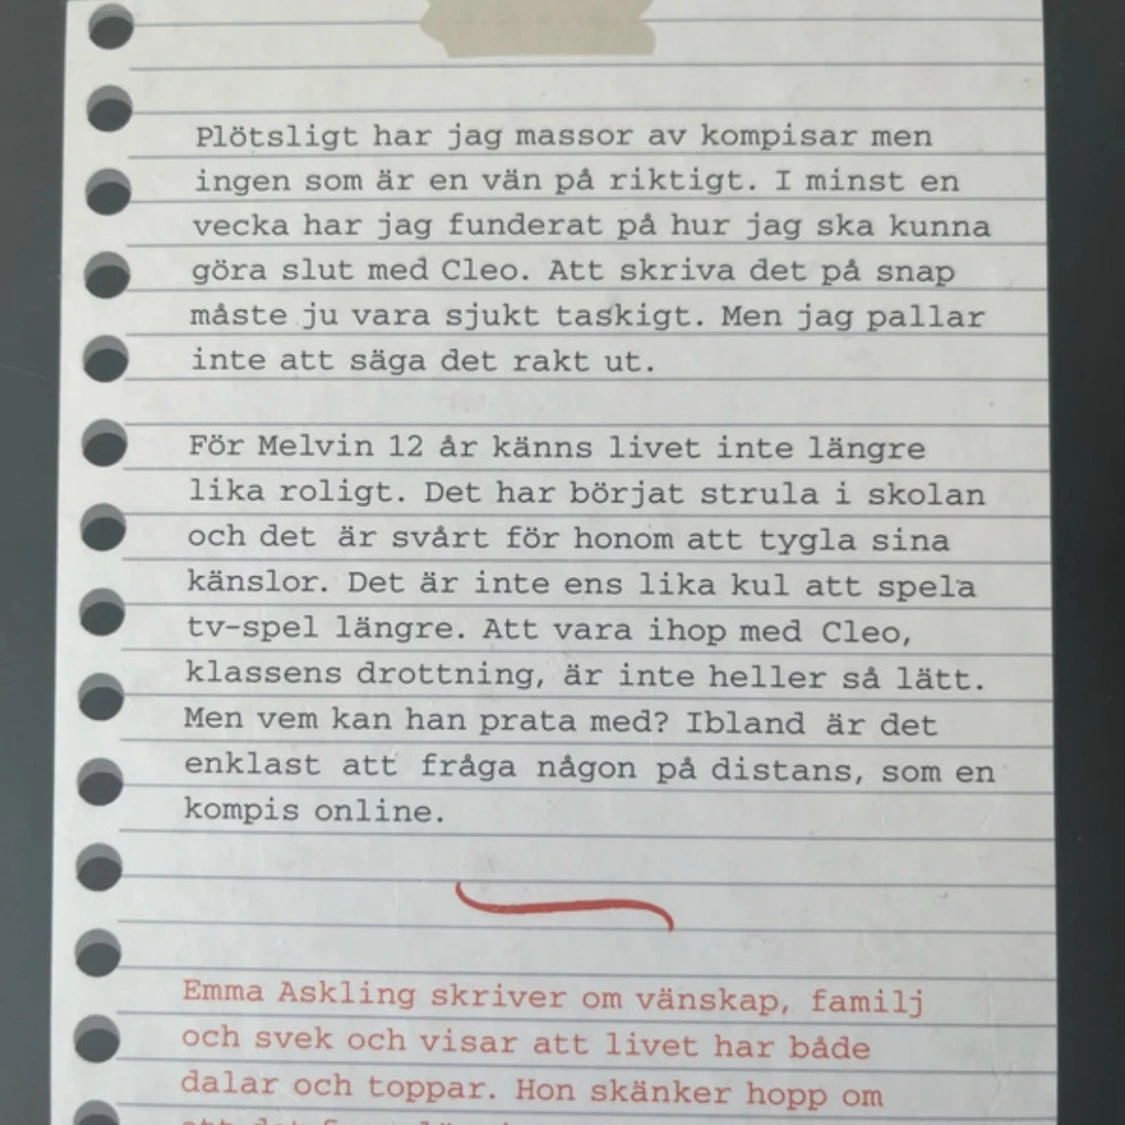 Plötsligt har jag massor av kompisar men
ingen som är en vän på riktigt. I minst en
vecka har jag funderat på hur jag ska kunna
göra slut med Cleo. Att skriva det på snap
måste ju vara sjukt taskigt. Men jag pallar
inte att säga det rakt ut.
För Melvin 12 år känns livet inte längre
lika roligt. Det har börjat strula i skolan
och det är svårt för honom att tygla sina
känslor. Det är inte ens lika kul att spela
tv-spel längre. Att vara ihop med Cleo,
klassens drottning, är inte heller så lätt.
Men vem kan han prata med? Ibland är det
enklast att fråga någon på distans, som en
kompis online.
Emma Askling skriver om vänskap, familj
och svek och visar att livet har både
dalar och toppar. Hon skänker hopp om